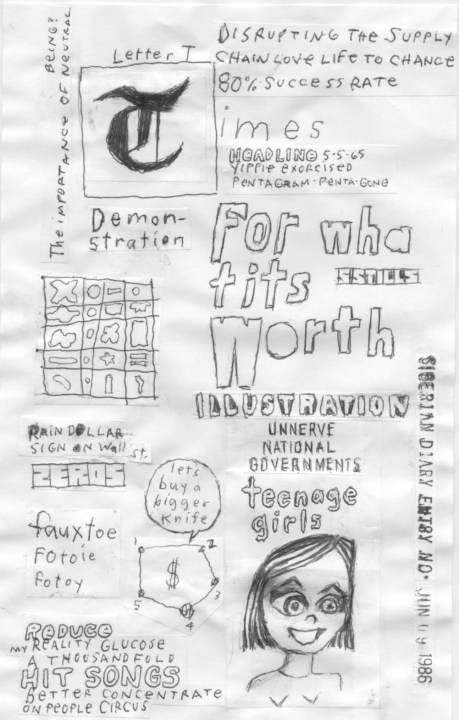 DISRUPTING THE SUPPLY
CHAIN LOVE LIFE TO CHANCE
80% SUCCESS RATE
The IMPORTANCE OF NEUTRAL
BEING?
Letter T
T
imes
HEADLINE 5-5-65
YIPPIE EXORCISED
PENTAGRAM-PENTA-GONE
Demon-
stration
For wha
tits
SSTILLS
Worth
ILLUSTRATION
UNNERVE
NATIONAL
GOVERNMENTS
teenage
girls
SIBERIAN DIARY ENTRY NO. JUN 19 1986
RAIN DOLLAR
SIGN ON Wall St.
ZEROS
let's
buy a
bigger
Knife
fauxtoe
Fotoie
fotoy
1
2
3
4
5
$
REDUCE
MY REALITY GLUCOSE
A THOUSANDFOLD
HIT SONGS
BETTER CONCENTRATE
ON PEOPLE CIRCUS